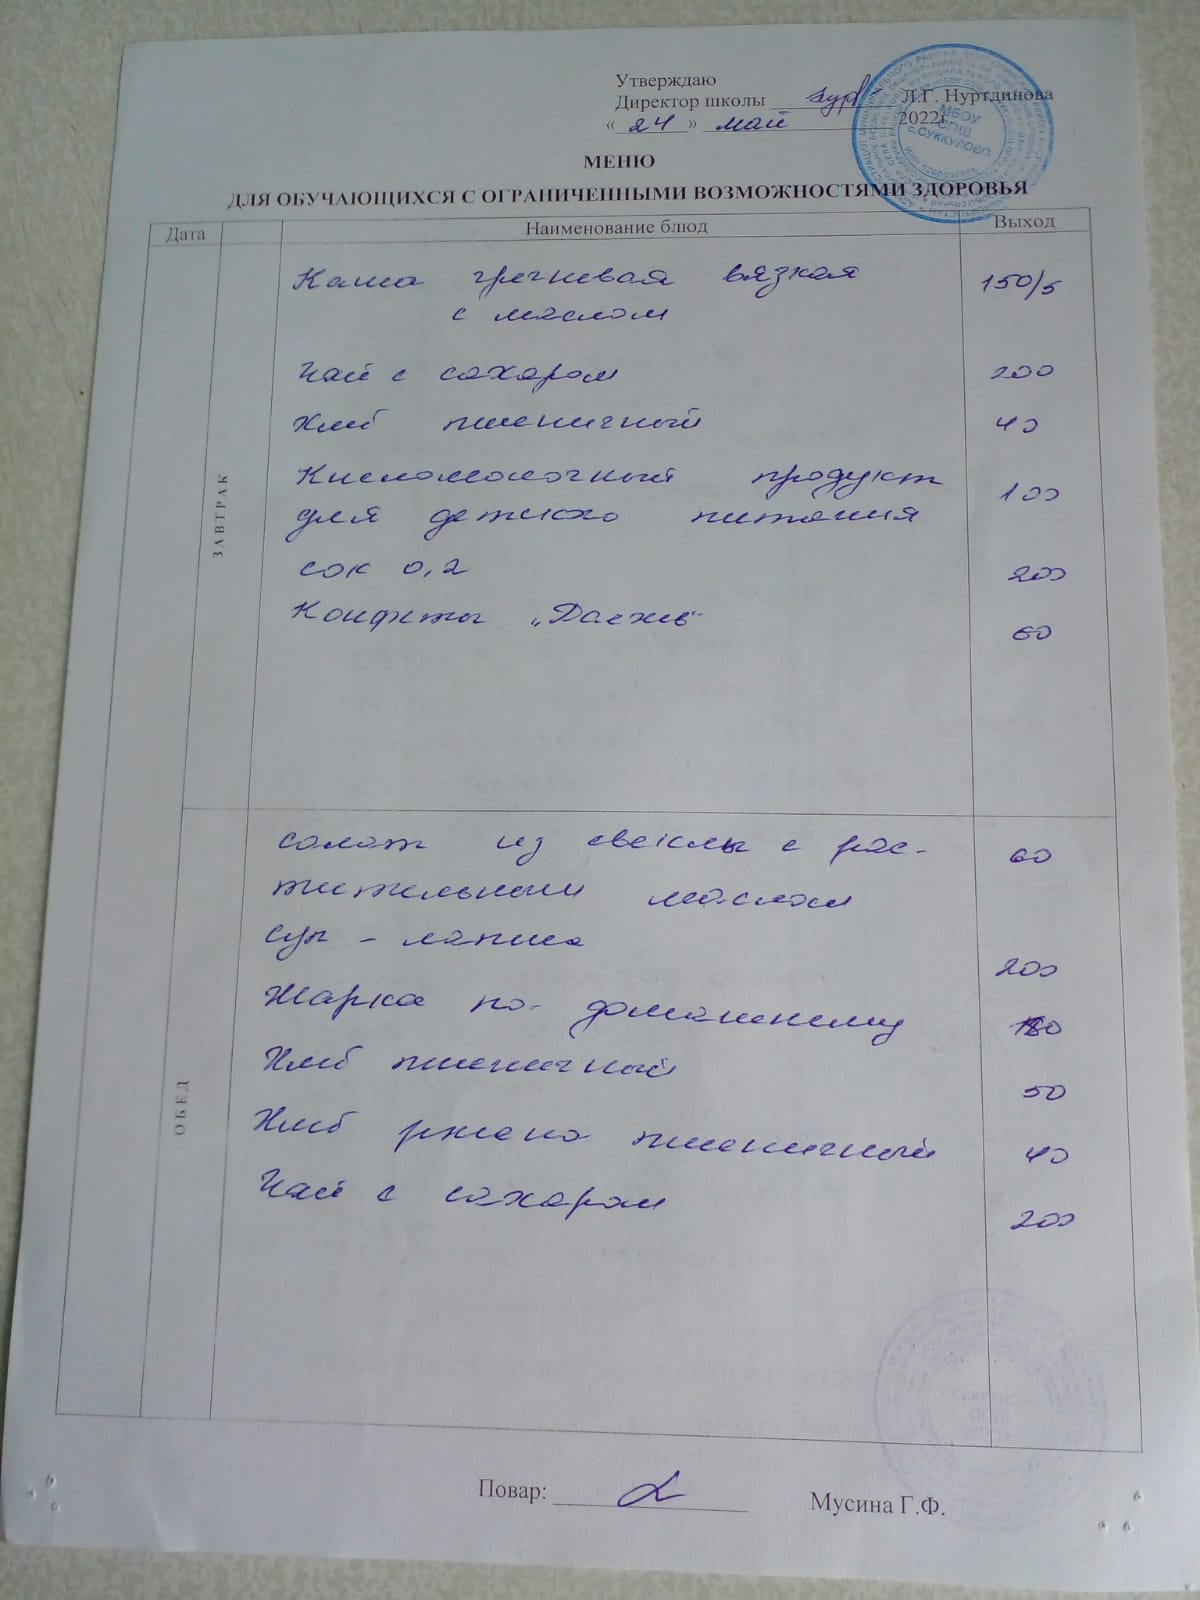 Утверждаю
Директор школы Л.Г. Нуртдинова
« 24 » май 2022г.
МБОУ
СОШ
с.СУККУЛОВО
МЕНЮ
ДЛЯ ОБУЧАЮЩИХСЯ С ОГРАНИЧЕННЫМИ ВОЗМОЖНОСТЯМИ ЗДОРОВЬЯ
Дата Наименование блюд Выход
ЗАВТРАК
Каша гречневая вязкая 150/5
с маслом
Чай с сахаром 200
Хлеб пшеничный 40
Кисломолочный продукт 100
для детского питания
сок 0,2 200
Конфеты 60
ОБЕД
салат из свеклы с рас- 60
тительным маслом
суп - лапша 200
Жаркое по-домашнему 180
Хлеб пшеничный 50
Хлеб ржано пшеничный 40
Чай с сахаром 200
Повар: Мусина Г.Ф.